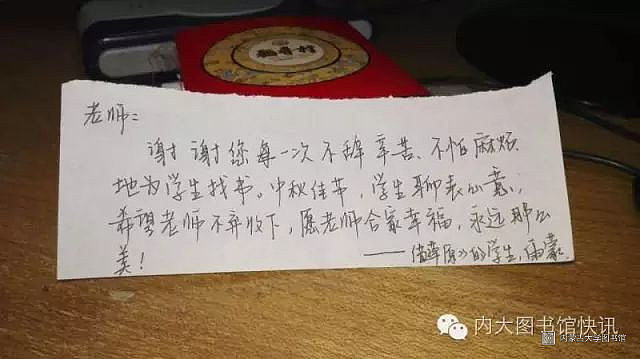 稻香村
老师：
谢谢您每一次不辞辛苦、不怕麻烦
地为学生找书。中秋佳节，学生聊表心意，
希望老师不弃收下，愿老师合家幸福，永远那么
美！
的学生，雨蒙
内大图书馆快讯
内蒙古大学图书馆